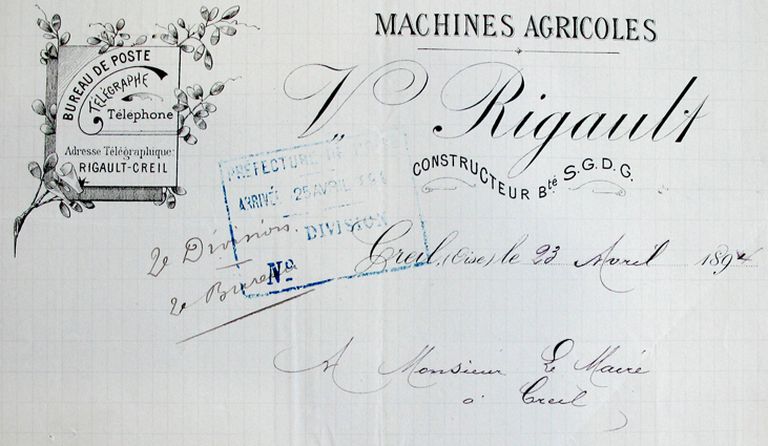 MACHINES AGRICOLES
BUREAU DE POSTE
TÉLÉGRAPHE
Téléphone
Adresse Télégraphique:
RIGAULT-CREIL
Vᵛᵉ Rigault
CONSTRUCTEUR Bté S.G.D.G.
PRÉFECTURE DE L'OISE
ARRIVÉE 25 AVRIL 189
DIVISION
No
2e Division
2e Bureau
Creil, (Oise) le 23 Avril 1894
A Monsieur Le Maire
à Creil